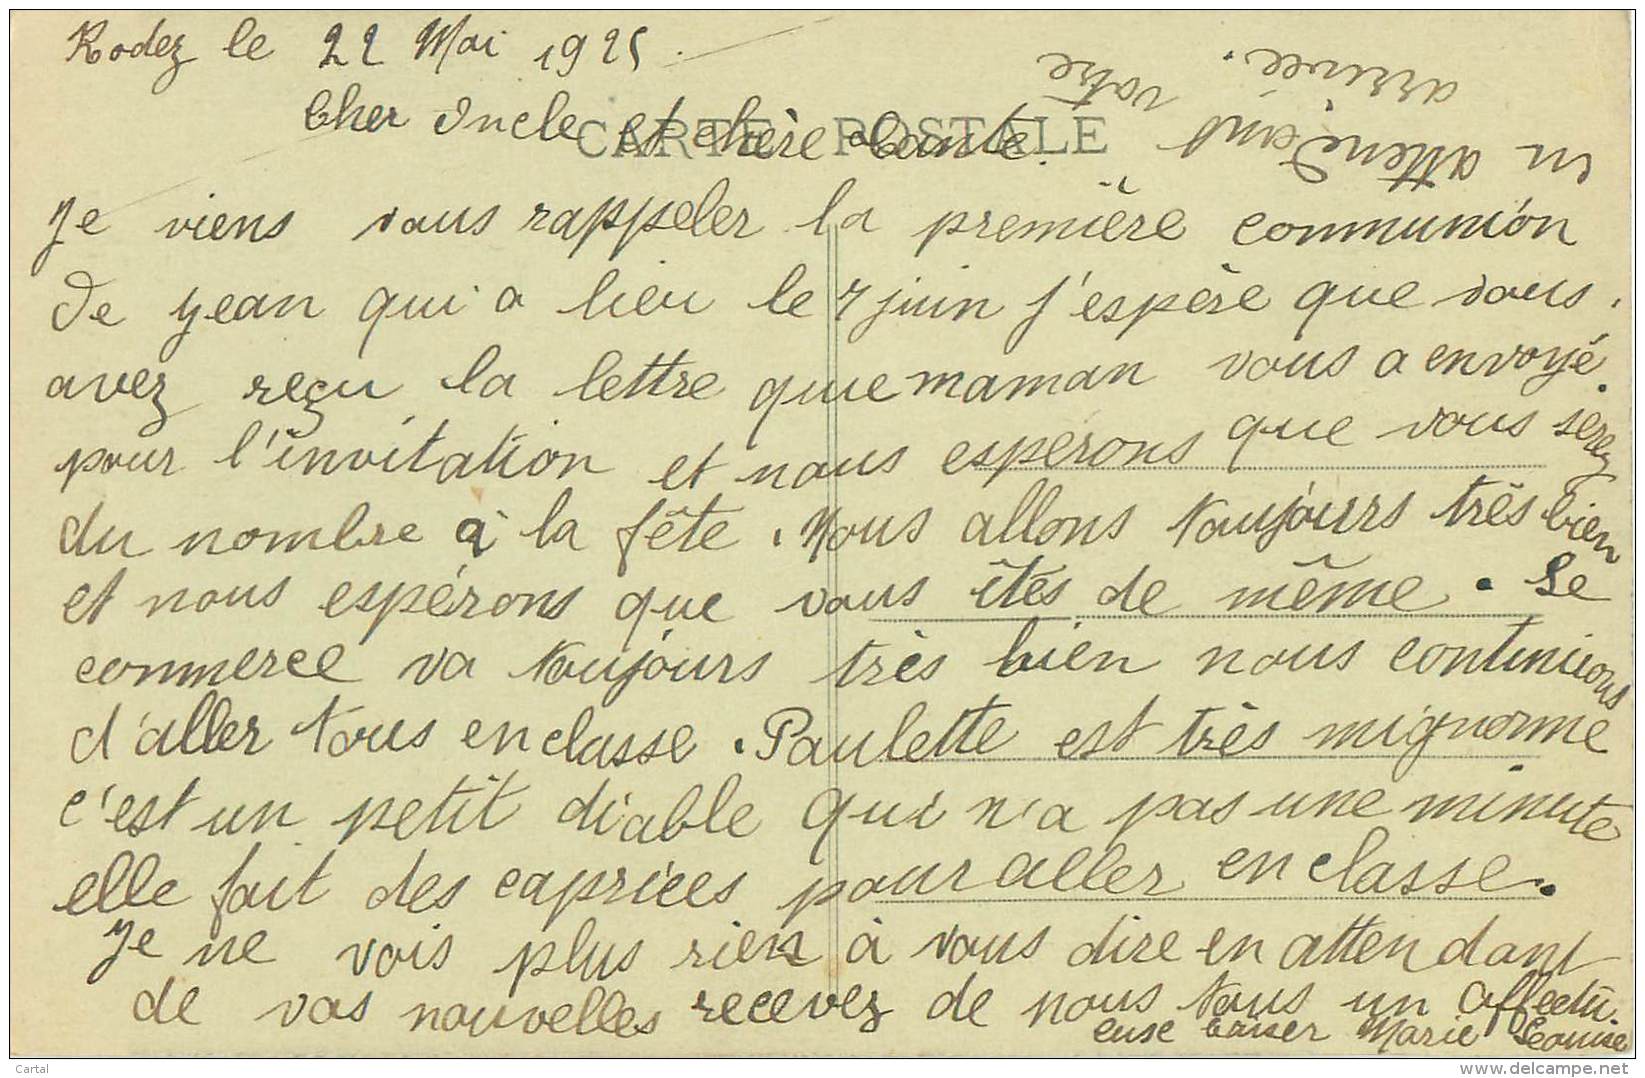 Rodez le 22 Mai 1925.
Cher Oncle et chère tante.
CARTE POSTALE
Je viens vous rappeler la première communion
de Jean qui a lieu le 7 juin j'espère que vous
avez reçu la lettre que maman vous a envoyé
pour l'invitation et nous espérons que vous serez
du nombre à la fête. Nous allons toujours très bien
et nous espérons que vous êtes de même. Le
commerce va toujours très bien nous continuons
d'aller tous en classe. Paulette est très mignonne
c'est un petit diable qui n'a pas une minute
elle fait des caprices pour aller en classe.
Je ne vois plus rien à vous dire en attendant
de vos nouvelles recevez de nous tous un affectu
euse baiser Marie Leonise
en attendant votre
arrivée.
Cartal
delcampe.net